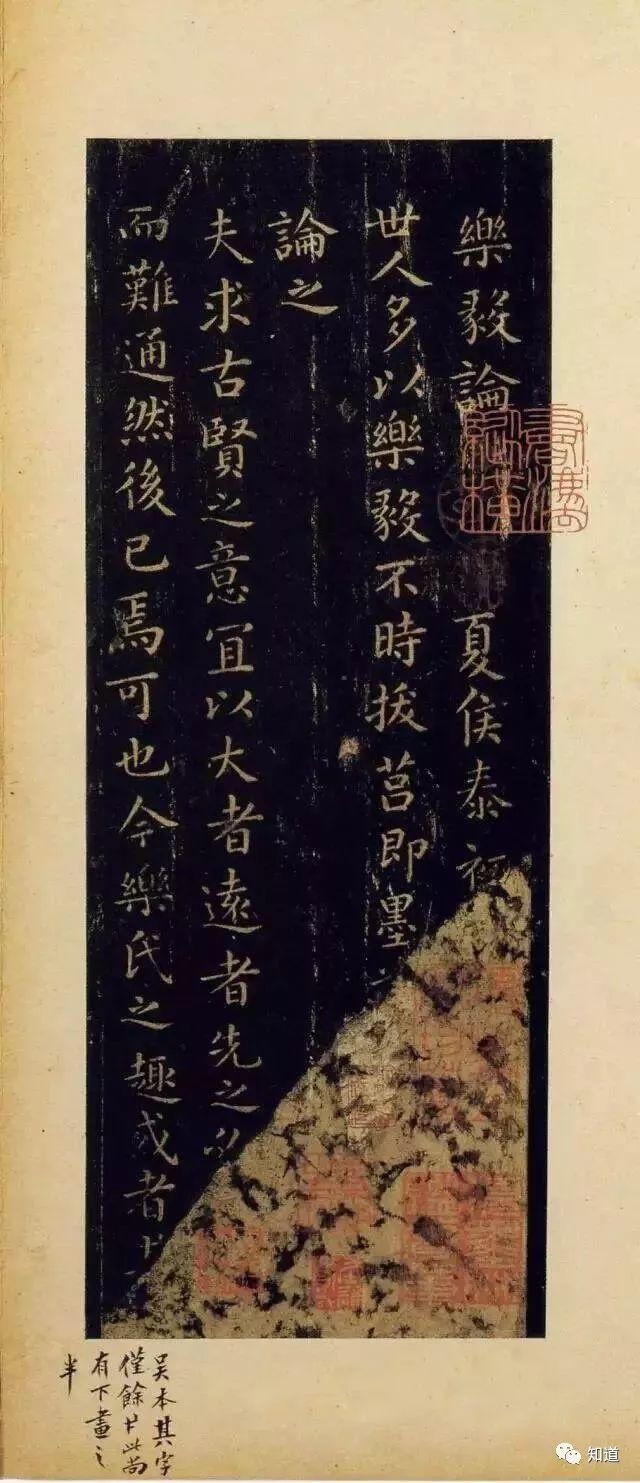 樂毅論 夏侯泰初
世人多以樂毅不時拔莒即墨
論之
夫求古賢之意宜以大者遠者先之
而難通然後已焉可也今樂氏之趣或者
吴本其字
僅餘 此尚
有下畫之
半
知道